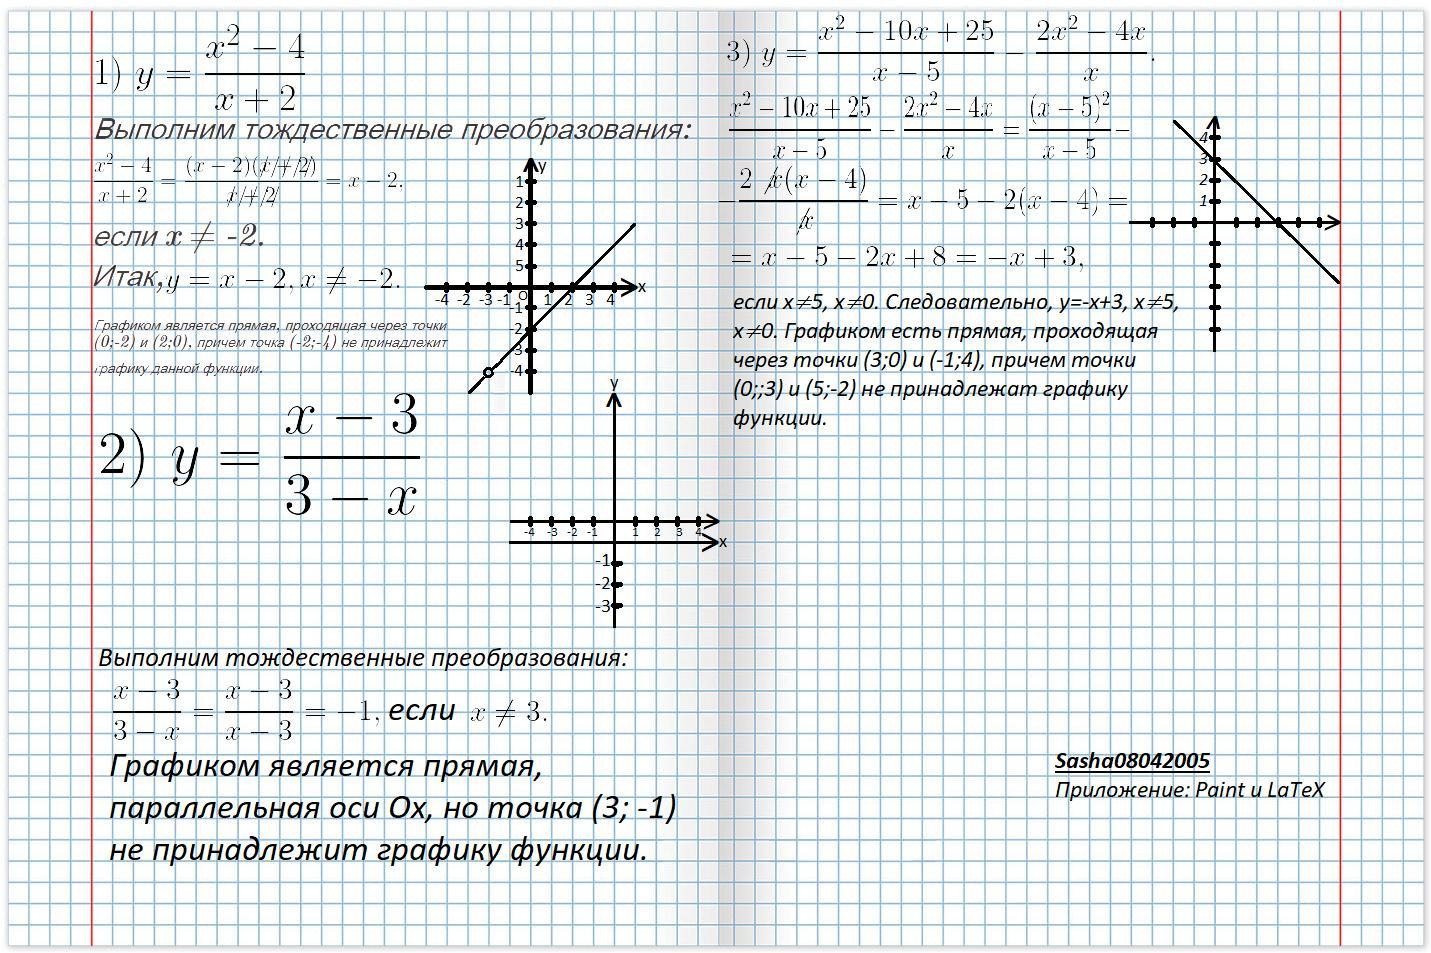 1) y = \frac{x^2 - 4}{x + 2}
Выполним тождественные преобразования:
\frac{x^2 - 4}{x + 2} = \frac{(x - 2)(x + 2)}{x + 2} = x - 2.
если x ≠ -2.
Итак, y = x - 2, x ≠ -2.
Графиком является прямая, проходящая через точки
(0;-2) и (2;0), причем точка (-2;-4) не принадлежит
графику данной функции.
y
1
2
3
4
5
-4 -2 -3 -1 O 1 2 3 4 x
-1
2
3
-4
2) y = \frac{x - 3}{3 - x}
y
-4 -3 -2 -1 1 2 3 4
x
-1
-2
-3
Выполним тождественные преобразования:
\frac{x - 3}{3 - x} = \frac{x - 3}{x - 3} = -1, если x ≠ 3.
Графиком является прямая,
параллельная оси Ох, но точка (3; -1)
не принадлежит графику функции.
3) y = \frac{x^2 - 10x + 25}{x - 5} - \frac{2x^2 - 4x}{x}.
\frac{x^2 - 10x + 25}{x - 5} - \frac{2x^2 - 4x}{x} = \frac{(x - 5)^2}{x - 5} -
- \frac{2 x(x - 4)}{x} = x - 5 - 2(x - 4) =
= x - 5 - 2x + 8 = -x + 3,
если x≠5, x≠0. Следовательно, y=-x+3, x≠5,
x≠0. Графиком есть прямая, проходящая
через точки (3;0) и (-1;4), причем точки
(0;;3) и (5;-2) не принадлежат графику
функции.
4
3
2
1
Sasha08042005
Приложение: Paint и LaTeX